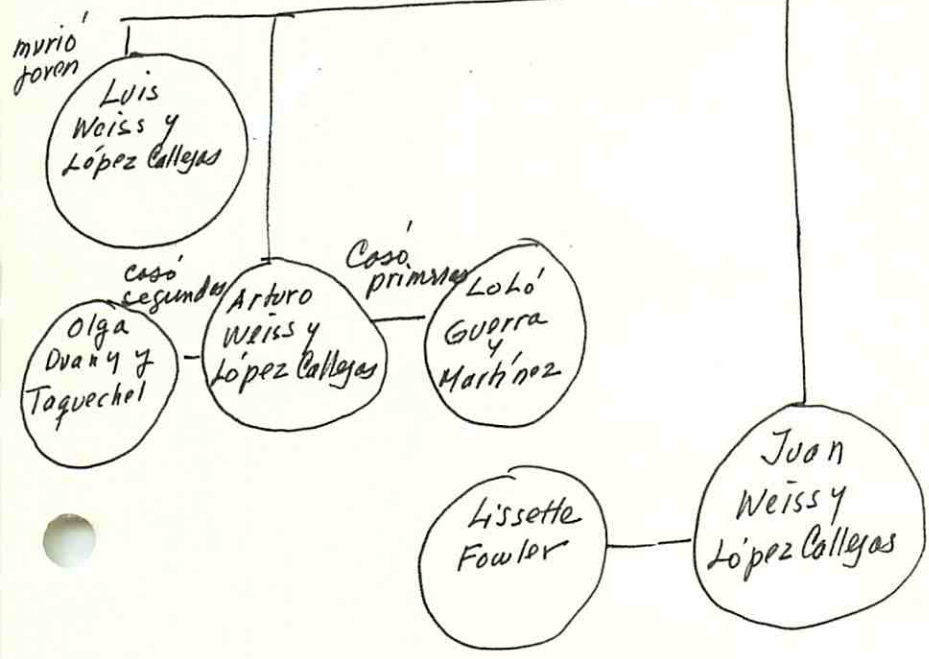 murió
joven
Luis
Weiss y
López Callejas
casó
segundas
Casó
primeras
Olga
Duany y
Taquechel
Arturo
Weiss y
López Callejas
Loló
Guerra
y
Martínez
Lissette
Fowler
Juan
Weiss y
López Callejas